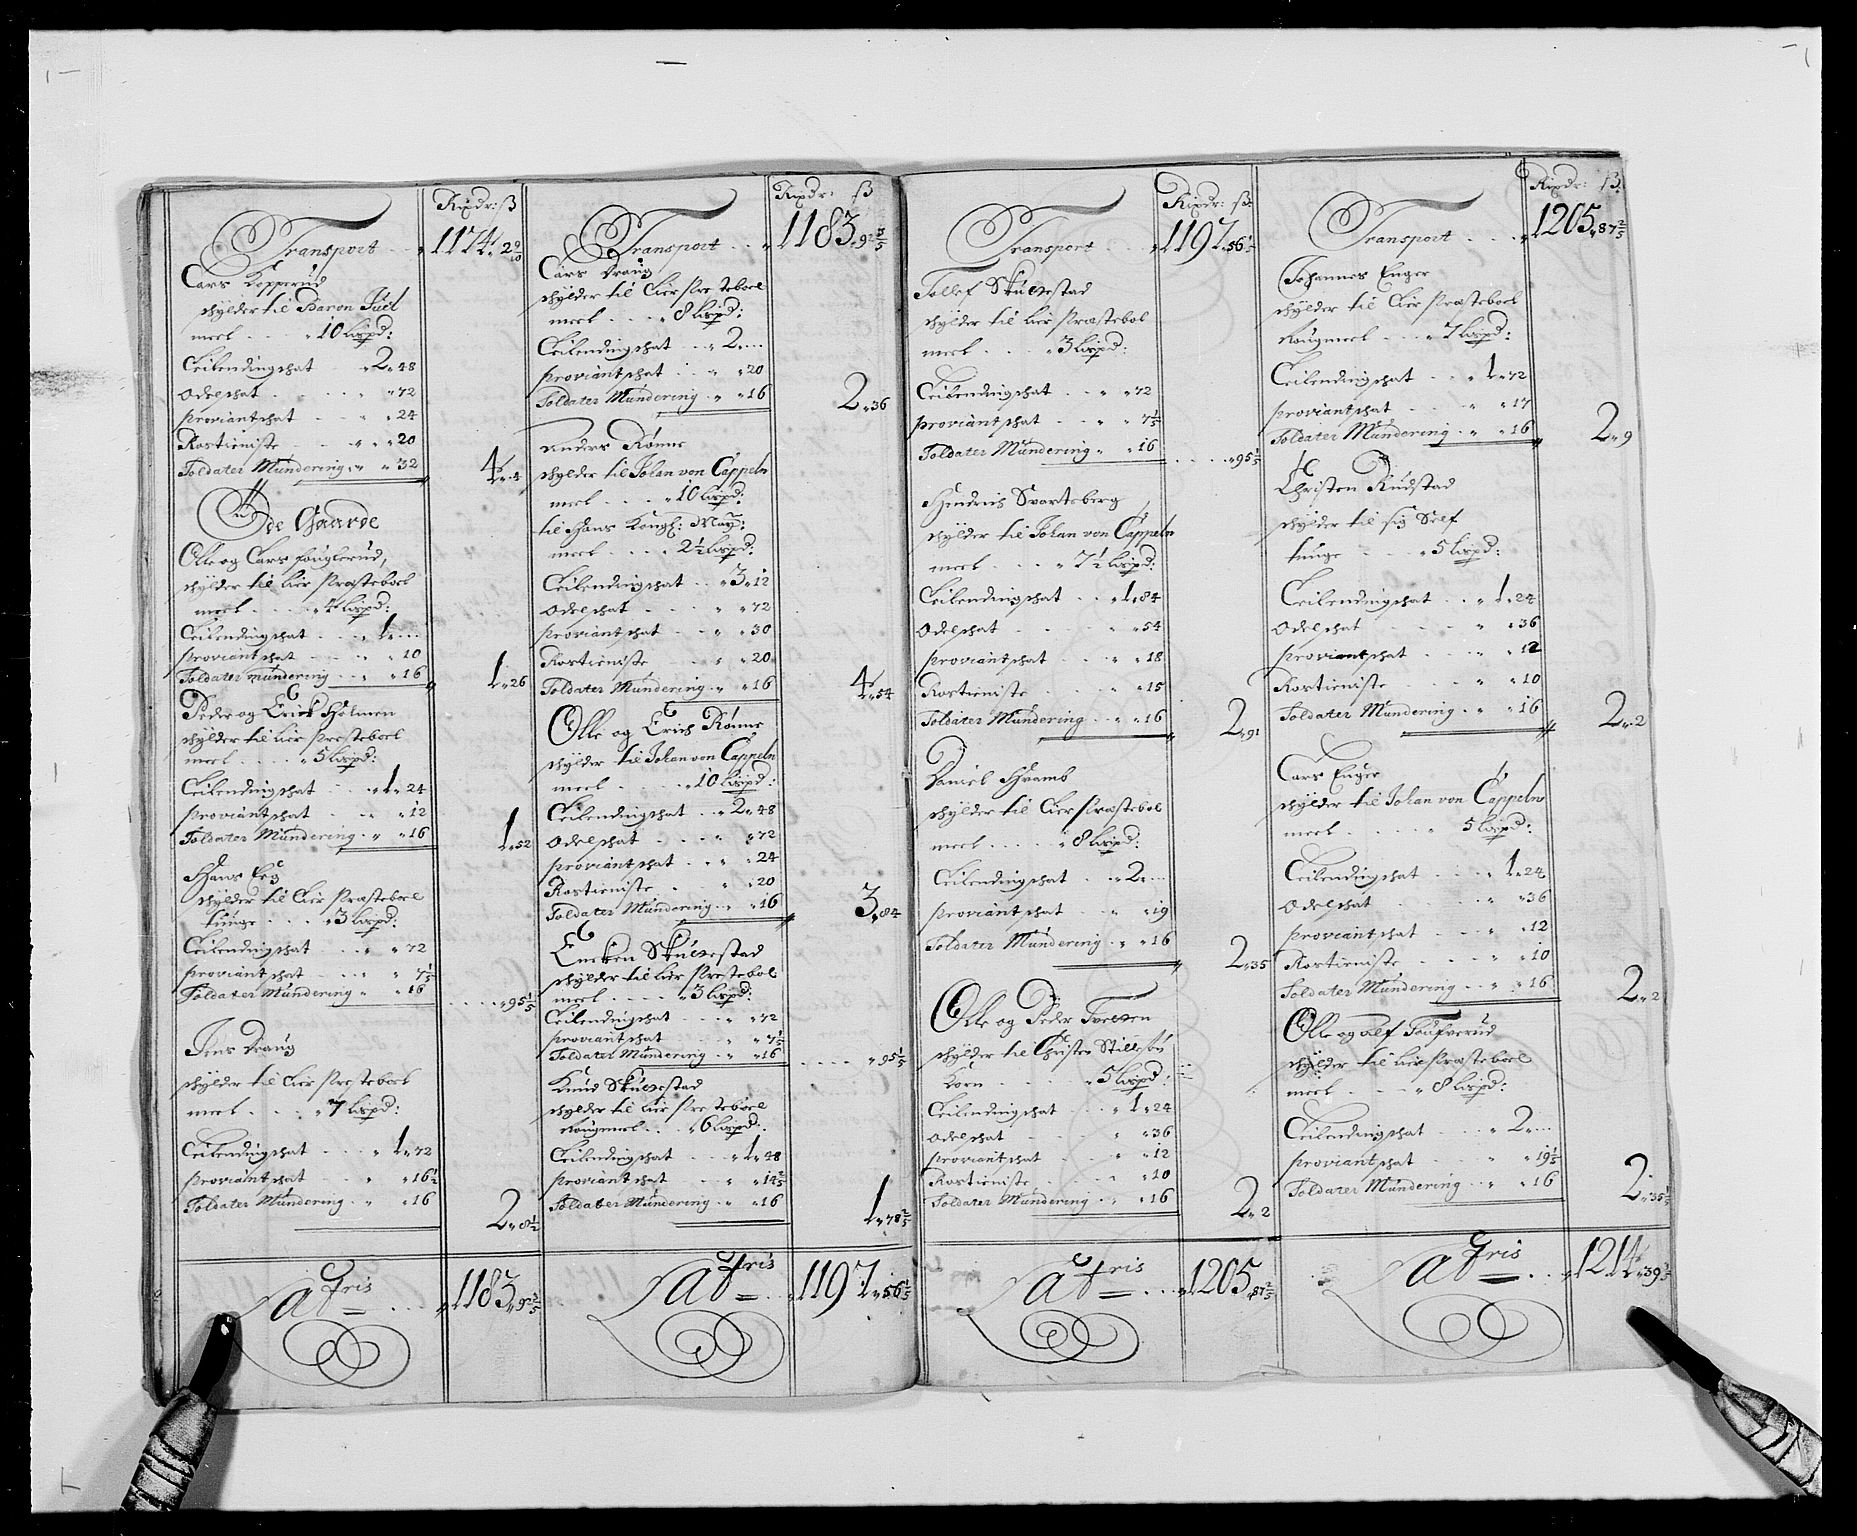 Rixdr: ß
Transport . . 1174 " 2 9/10
Lars Kopperud
schylder til Baron Juel
meel . . " 10 lispd:
Leilendingschat " 2 " 48
Odelschat . . . " " 72
proviantschat " " 24
Rostieniste " " 20
Soldater Mundering " " 32
4 " 4
Øde Gaarde
Olle og Lars fouglerud,
schylder til Lier Præsteboel
meel . . . " 4 lispd:
Leilendingschat . . " 1 " ...
proviantschat " " 10
Soldater mundering " " 16
1 " 26
Peder og Erick Holmen
schylder til Lier Presteboel
meel . . . " 5 lispd:
Leilendingschat . . " 1 " 24
proviantschat " " 12
Soldater Mundering " " 16
1 " 52
Hans Eeg
schylder til Lier Præsteboel
tunge . . . " 3 lispd:
Leilendingschat . . " " 72
proviantschat " " 7 1/5
Soldater Mundering " " 16
" 95 1/5
Jens Draug
schylder til Lier Presteboel
meel . . . " 7 lispd:
Leilendingschat . . " 1 " 72
proviantschat " " 16 1/2
Soldater Mundering " " 16
2 " 8 1/2
Latris . . . 1183 " 92 3/5
Rixdr: ß
Transport . . " 1183 " 92 3/5
Lars Draug
schylder til Lier Presteboel
meel . . . " 8 lispd:
Leilendingschat . . " 2 " ...
proviantschat " " 20
Soldater Mundering " " 16
2 " 36
Anders Rønne
schylder til Johan von Cappeln
meel . . . " 10 lispd:
til Hans Kongl: May:
meel . . . " 2 1/2 lispd:
Leilendingschat . . " 3 " 12
Odelschat " " 72
proviantschat " " 30
Rostieniste " " 20
Soldater Mundering " " 16
4 " 54
Olle og Erich Rønne
schylder til Johan von Cappeln
meel . . . " 10 lispd:
Leilendingschat . . " 2 " 48
Odelschat " " 72
proviantschat " " 24
Rostieniste " " 20
Soldater Mundering " " 16
3 " 84
Encken Skuestad
schylder til Lier Presteboel
meel . . . " 3 lispd:
Leilendingschat " " 72
proviantschat " " 7 1/5
Soldater Mundering " " 16
" 95 1/5
Knud Skuestad
schylder til Lier Presteboel
Rougmeel . . " 6 lispd:
Leilendingschat . . " 1 " 48
proviantschat " " 14 2/5
Soldater Mundering " " 16
1 " 78 2/5
Latris . . . 1197 " 56 1/5
Rixdr: ß:
Transport . . " 1197 " 56 1/5
Tollef Skuestad
schylder til Lier Præstebol
meel . . . " 3 lispd:
Leilendingschat " " 72
proviantschat " " 7 1/5
Soldater Mundering " " 16
" 95 1/5
Hindrich Svartsberg
schylder til Johan von Cappeln
meel . . . " 7 1/2 lispd:
Leilendingschat . . " 1 " 84
Odelschat " " 54
proviantschat " " 18
Rostieniste " " 15
Soldater Mundering " " 16
2 " 91
Daniel Hvamb
schylder til Lier Præstebol
meel . . . " 8 lispd:
Leilendingschat . . " 2 " ...
proviantschat " " 19
Soldater Mundering " " 16
2 " 35
Olle og Peder Tveten
schylder til Christen Stillesøn
Korn . . . " 5 lispd:
Leilendingschat . . " 1 " 24
Odelschat " " 36
proviantschat " " 12
Rostieniste " " 10
Soldater Mundering " " 16
2 " 2
Latris . . . 1205 " 87 2/5
Rixdr: ß:
Transport . . . " 1205 " 87 2/5
Johannes Enger
schylder til Lier Præsteboel
Rougmeel . . " 7 lispd:
Leilendingschat . . " 1 " 72
proviantschat " " 17
Soldater Mundering " " 16
2 " 9
Christen Rudstad
schylder til sig Self
tunge . . . " 5 lispd:
Leilendingschat . . " 1 " 24
Odelschat " " 36
proviantschat " " 12
Rostieniste " " 10
Soldater Mundering " " 16
2 " 2
Lars Enger
schylder til Johan von Cappeln
meel . . . " 5 lispd:
Leilendingschat . . " 1 " 24
Odelschat " " 36
proviantschat " " 12
Rostieniste " " 10
Soldater Mundering " " 16
2 " 2
Olle og Alf Toufverud
schylder til Lier Præsteboel
meel . . . " 8 lispd:
Leilendingschat . . " 2 " ...
proviantschat " " 19 1/5
Soldater Mundering " " 16
2 " 35 1/5
Latris . . . 1214 " 39 3/5